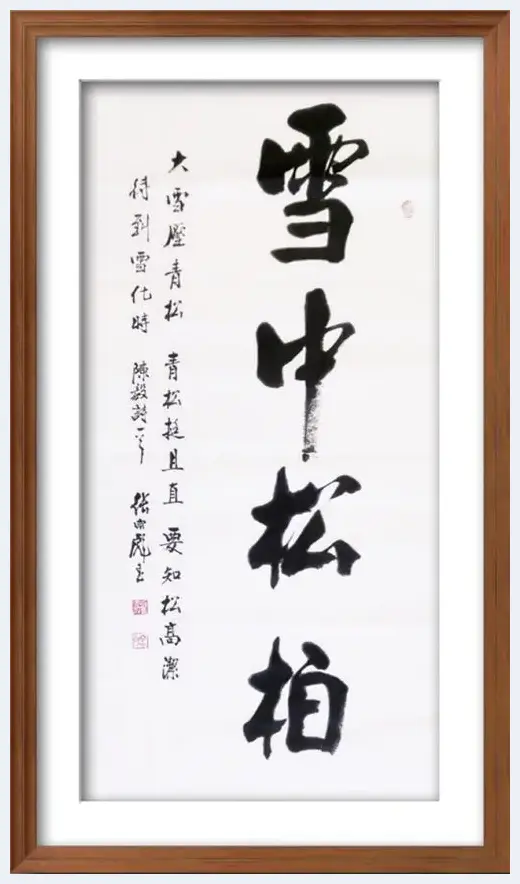 雪中松柏
大雪壓青松 青松挺且直 要知松高潔
待到雪化時 陳毅詩一首 張